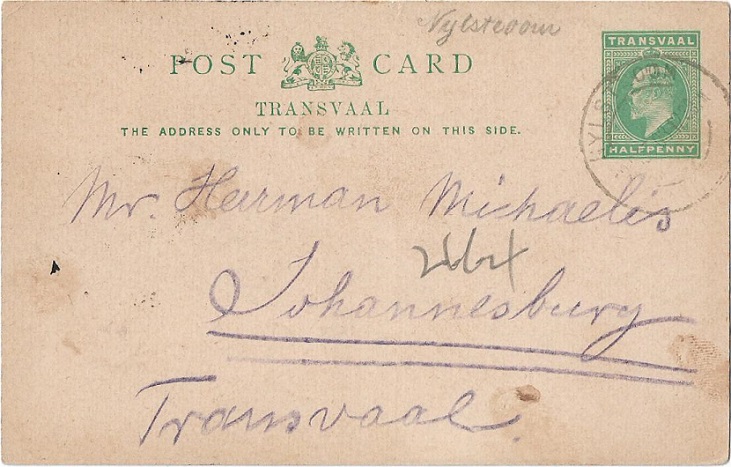 Nylstroom
POST CARD
TRANSVAAL
THE ADDRESS ONLY TO BE WRITTEN ON THIS SIDE.
TRANSVAAL
HALFPENNY
Mr. Herman Michaelis
Johannesburg
Transvaal.